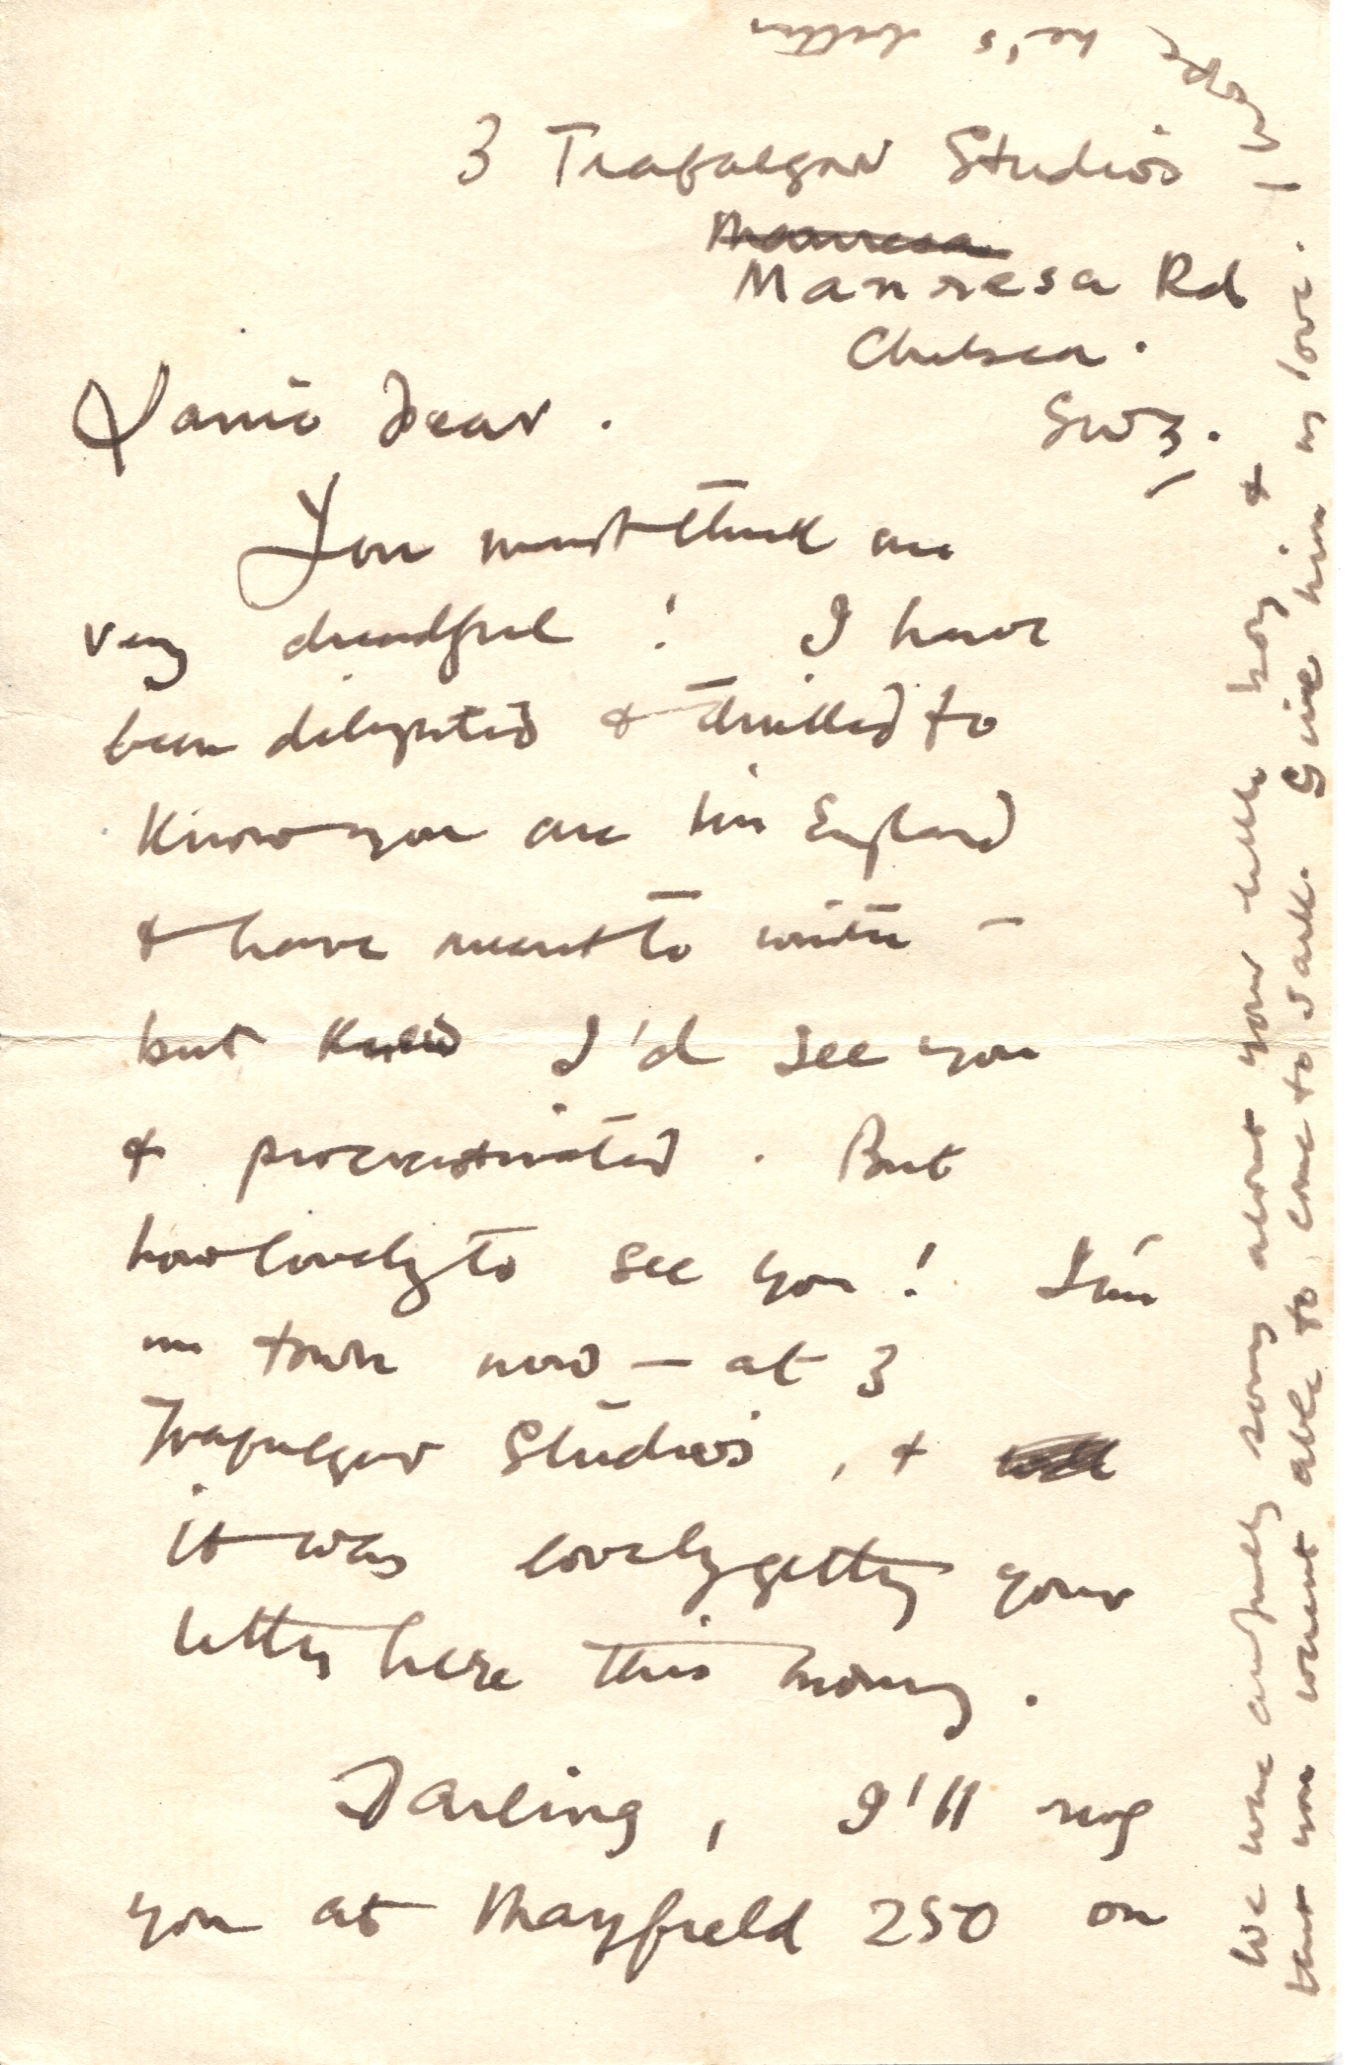 3 Trafalgar Studios
Manresa
Manresa Rd
Chelsea.
SW3.
dear.
You must think me
very dreadful! I have
been delighted & thrilled to
know you are in England
& have meant to write -
but knew I'd see you
& procrastinated. But
how lovely to see you! I'm
in town now — at 3
Trafalgar Studios, &
it was lovely getting your
letter here this morning.
Darling, I'll ring
you at Mayfield 250 on
We were awfully sorry about your little boy &
that you weren't able to come to Sark. Give him my love.
I hope he's better